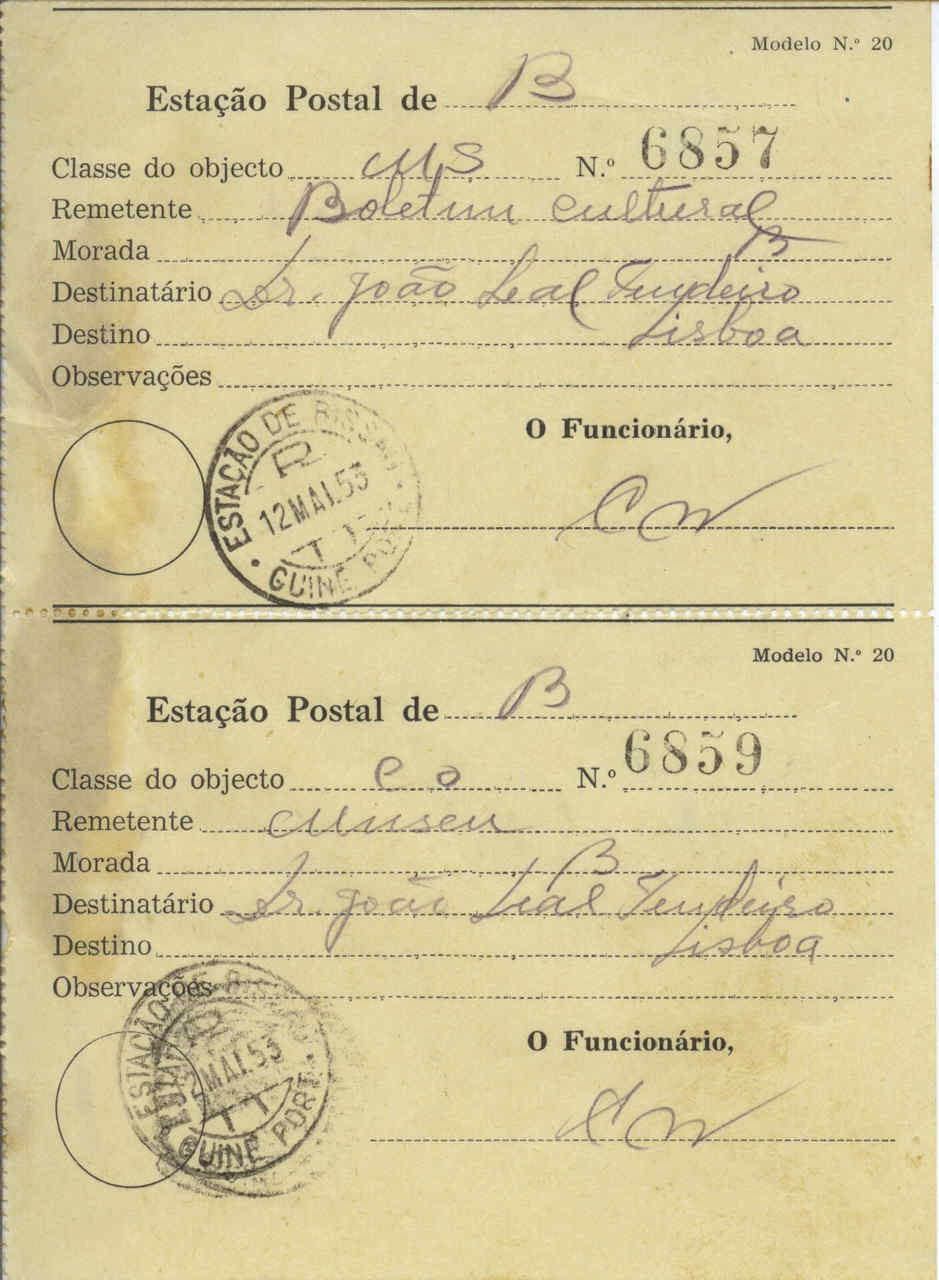 Modelo N.º 20
Estação Postal de B
Classe do objecto MS N.º 6857
Remetente Boletim cultural
Morada B
Destinatário Dr. João Leal Tendeiro
Destino Lisboa
Observações
O Funcionário,
ESTAÇÃO DE BISSAU
R
12 MAI. 53
TT
GUINÉ PORT.
Modelo N.º 20
Estação Postal de B
Classe do objecto C o N.º 6859
Remetente Museu
Morada B
Destinatário Dr. João Leal Tendeiro
Destino Lisboa
Observações
O Funcionário,
ESTAÇÃO DE B
R
2 MAI. 53
TT
GUINÉ PORT.